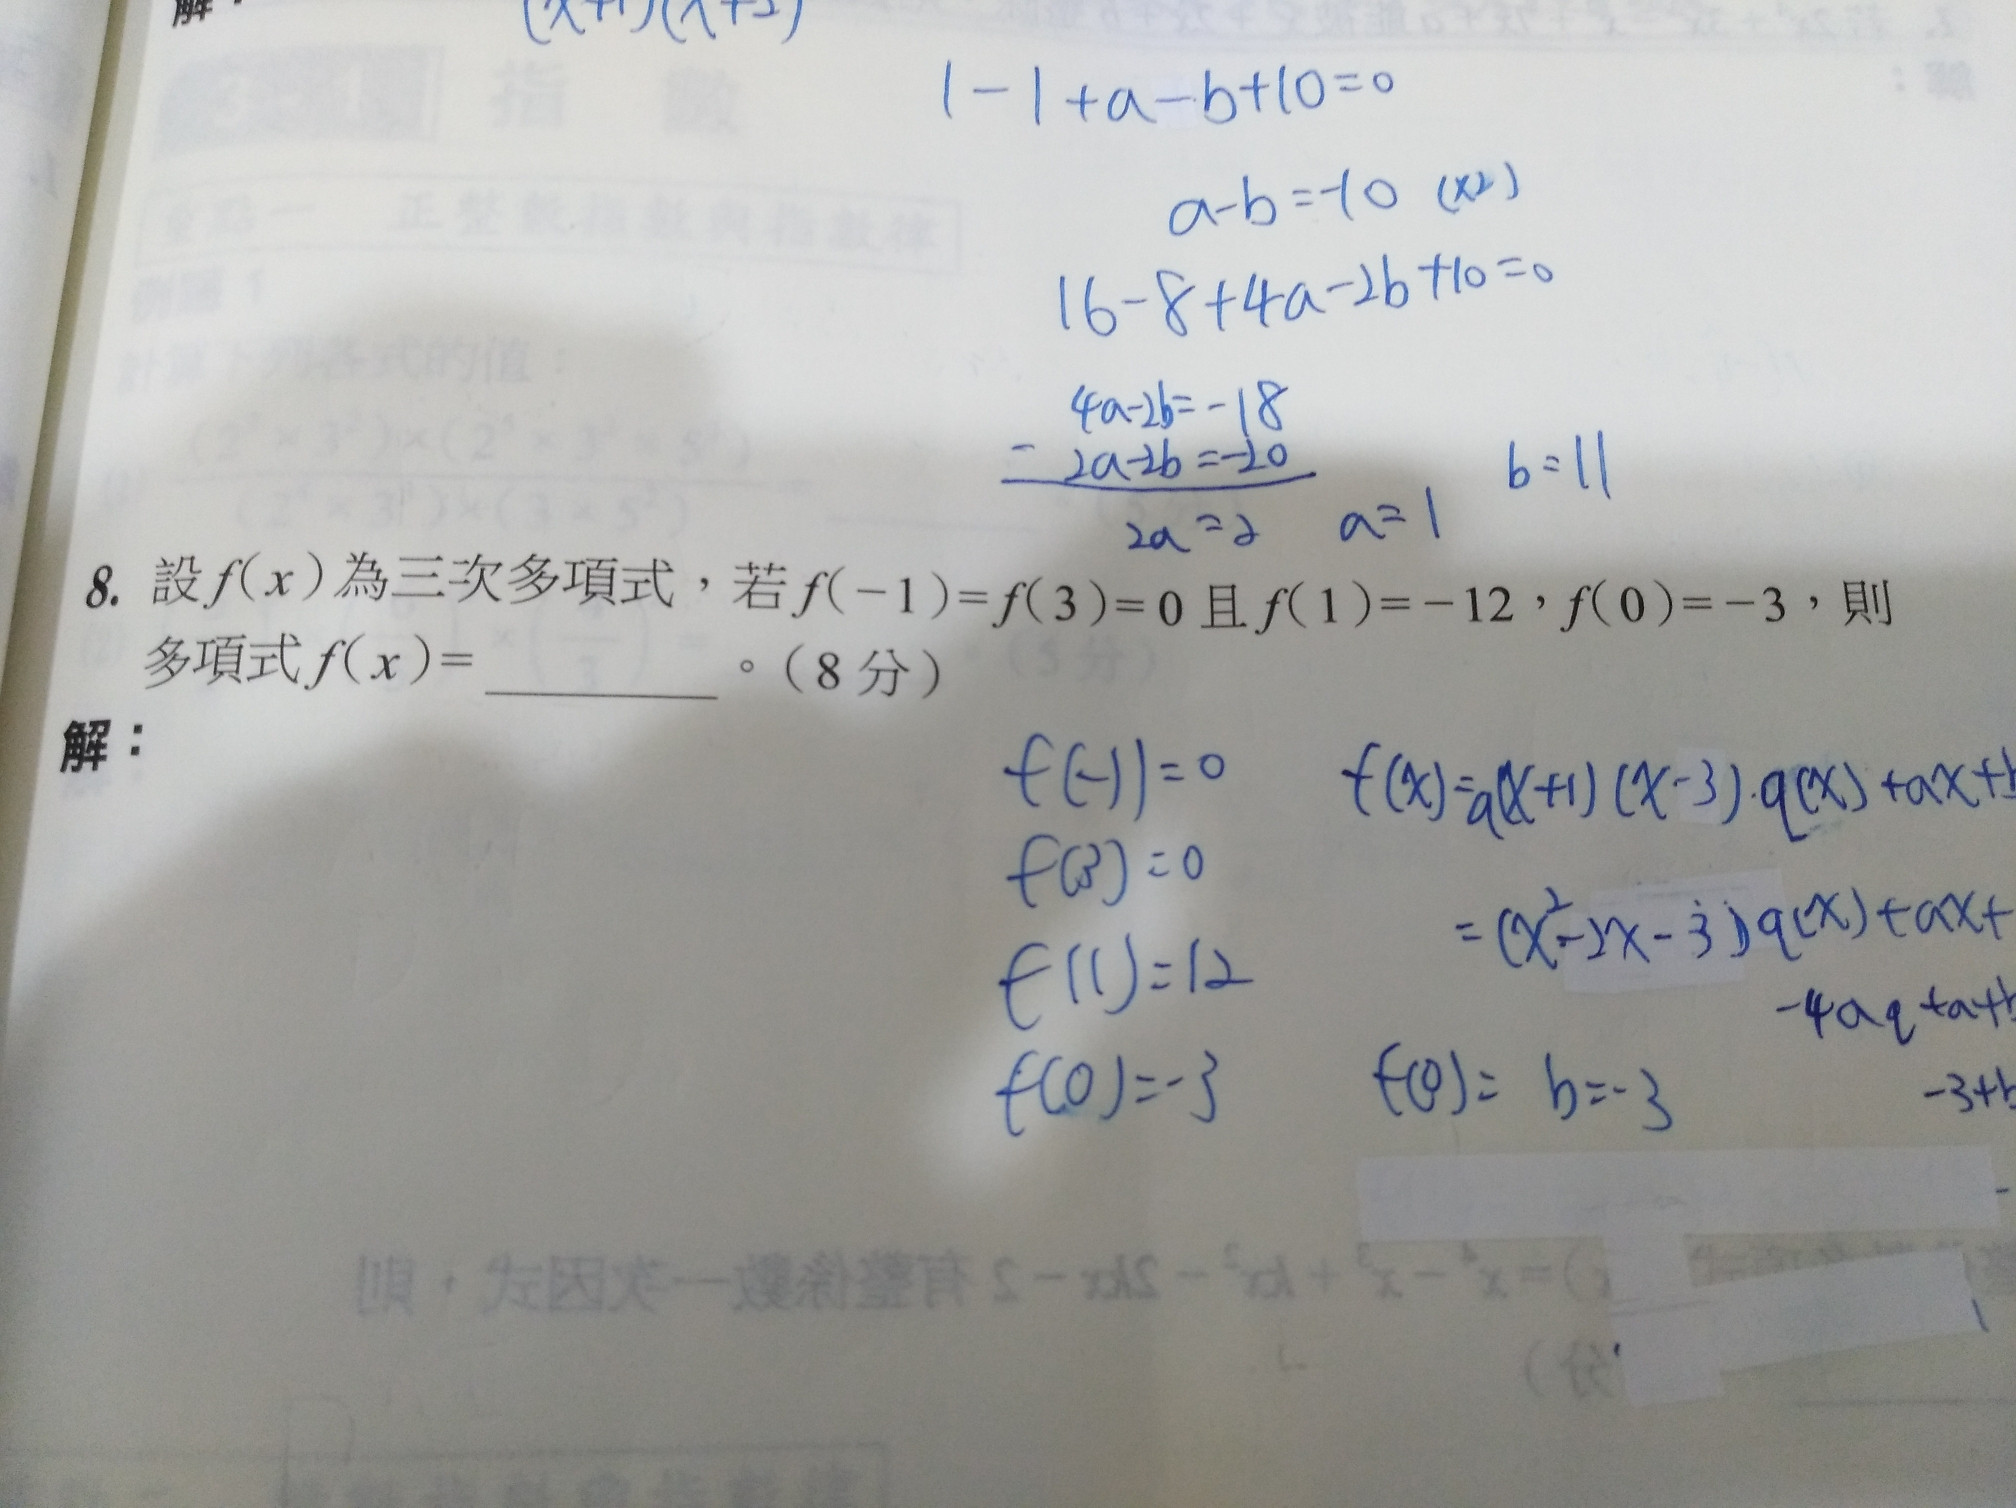 解：
(x+1)(x+2)
1-1+a-b+10=0
a-b=-10 (x2)
16-8+4a-2b+10=0
4a-2b=-18
- 2a-2b=-20
2a=2 a=1 b=11
8. 設f(x)為三次多項式，若f(-1)=f(3)=0且f(1)=-12，f(0)=-3，則
多項式f(x)=________。(8分)
解：
f(-1)=0 f(x)=a(x+1)(x-3)·q(x)+ax+b
f(3)=0
=(x²-2x-3)q(x)+ax+
f(1)=12
-4aq+a+b
f(0)=-3 f(0)= b=-3
-3+b